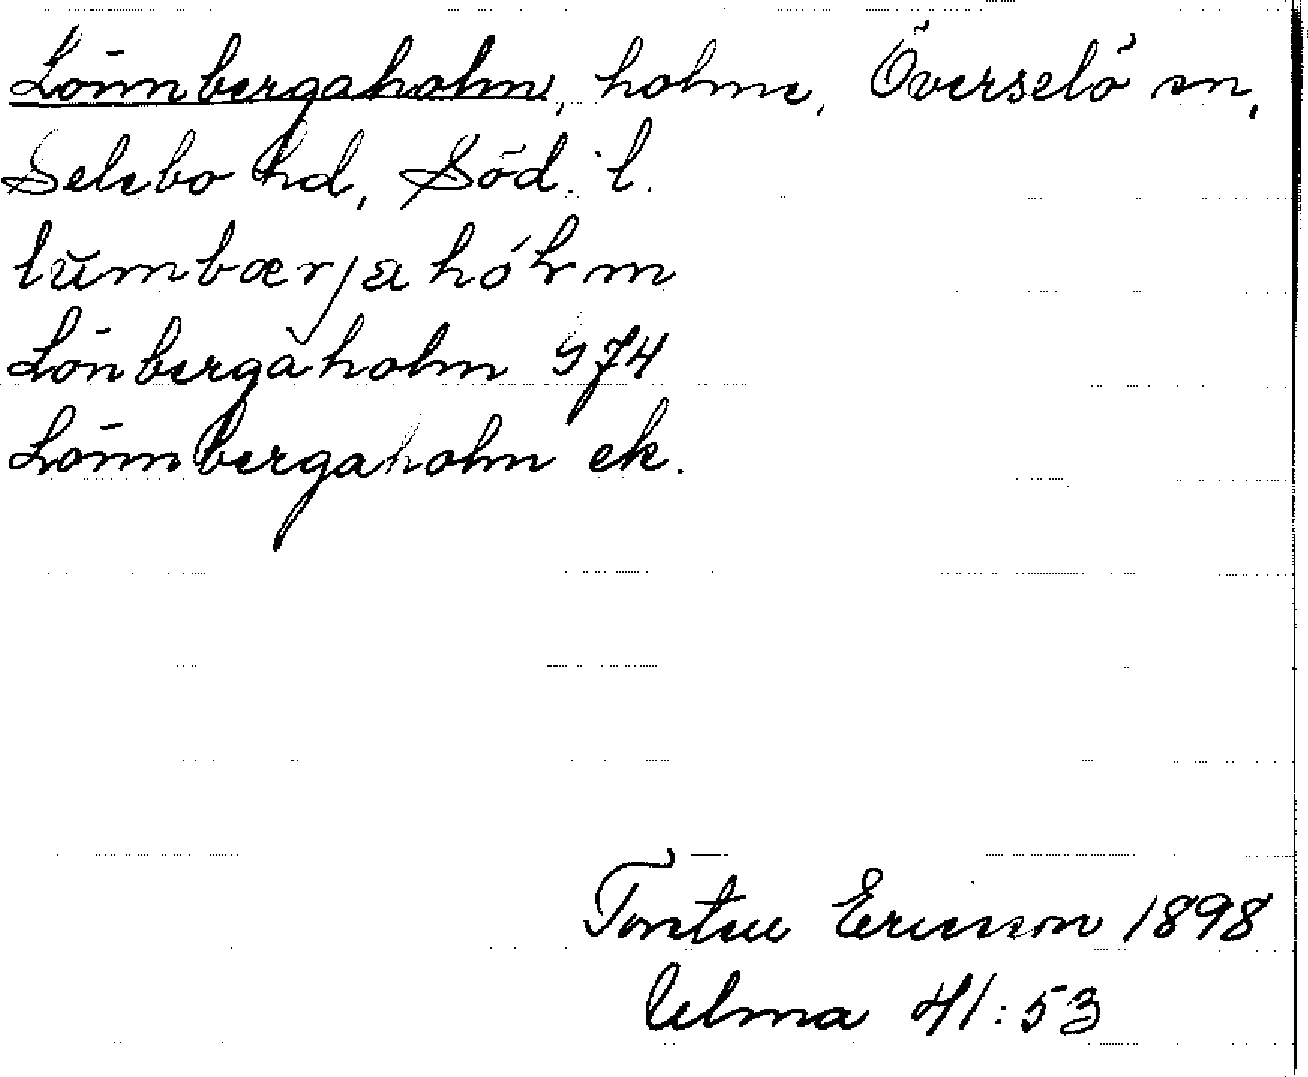 Lönnbergaholm, holme, Överselö sn,
Selebo hd, Söd. l.
lŭmbærjahólm
Lönbergaholm 974
Lönnbergaholm ek.
Ericsson 1898
Ulma 41:53